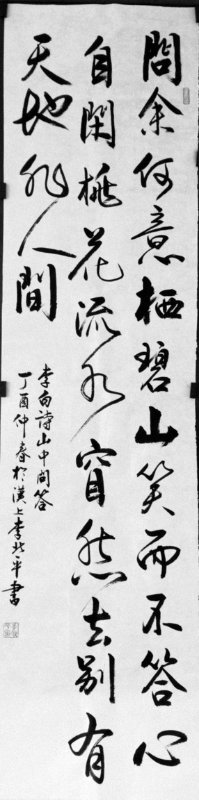 問余何意栖碧山笑而不答心
自閑桃花流水窅然去別有
天地非人間
李白詩山中問答
丁酉仲春於漢上李北平書